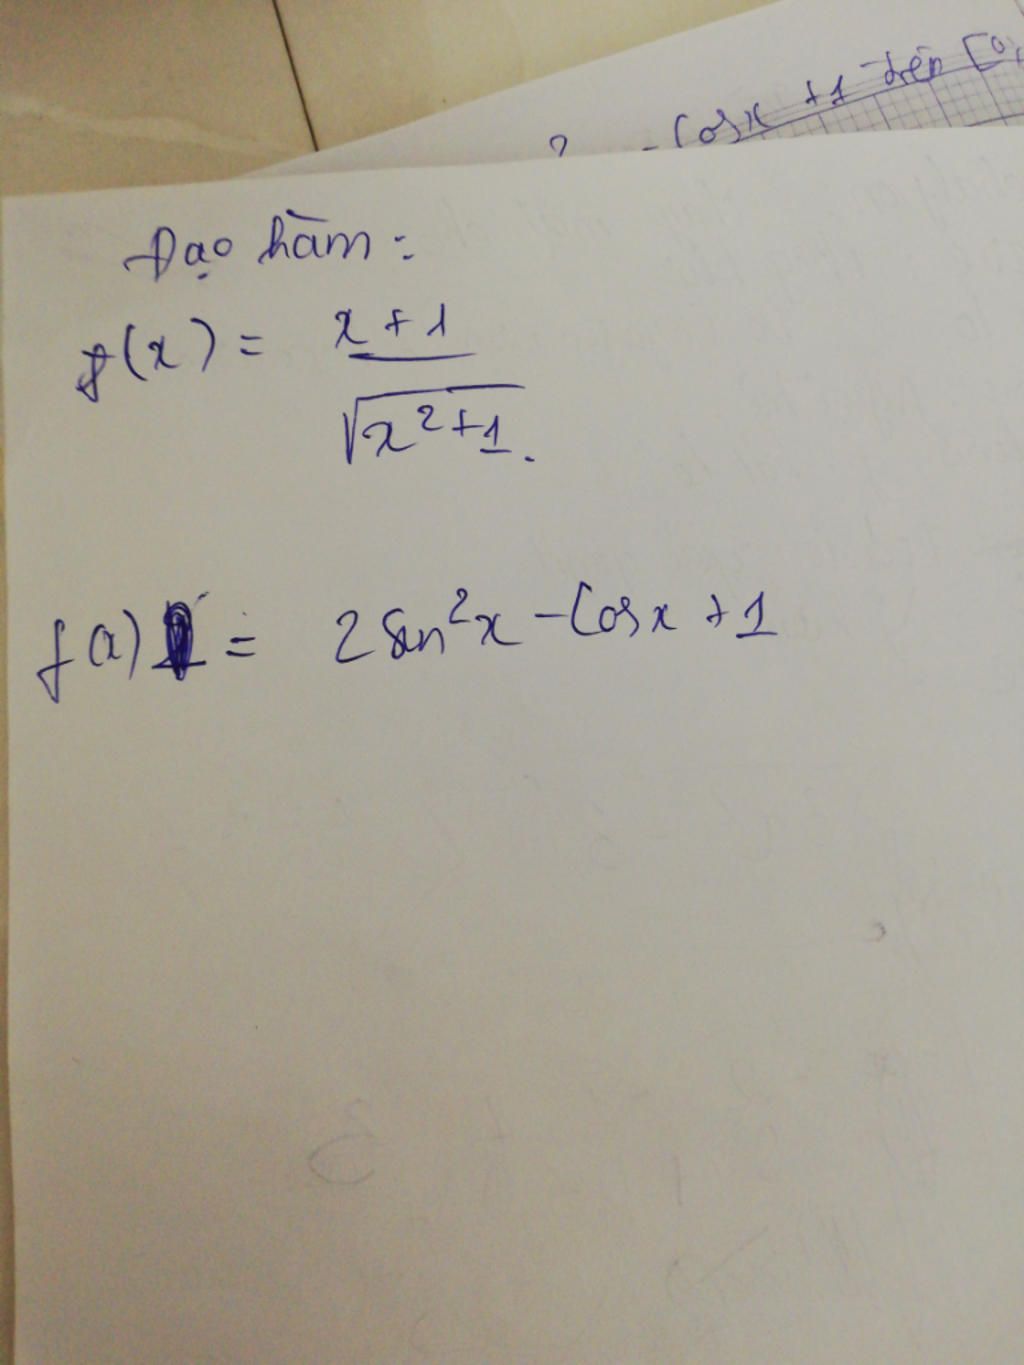 - Cosx +1 trên [0;
Đạo hàm:
f(x) = x + 1
√x²+1.
f(x) = 2 sin²x - Cosx + 1